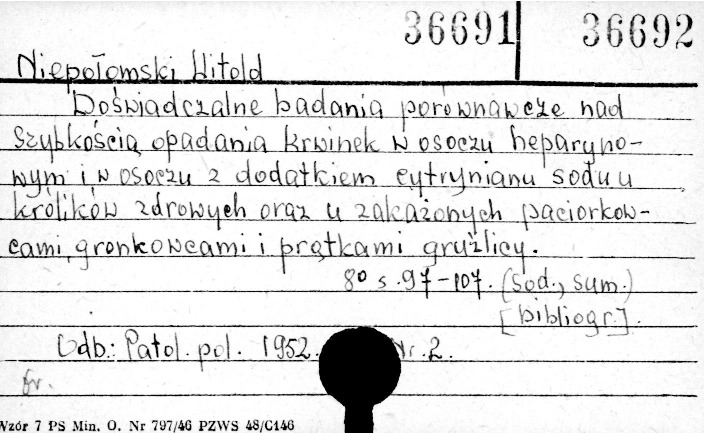 36691 36692
Niepołomski Witold
Doświadczalne badania porównawcze nad
szybkością opadania krwinek w osoczu heparyno-
wym i w osoczu z dodatkiem cytrynianu sodu u
królików zdrowych oraz u zakażonych paciorkow-
cami, gronkowcami i prątkami gruźlicy.
80 s. 97-107. (sod., sum.)
[bibliogr.].
Odb.: Patol. pol. 1952. Nr. 2.
fr.
Wzór 7 PS Min. O. Nr 797/46 PZWS 48/C146